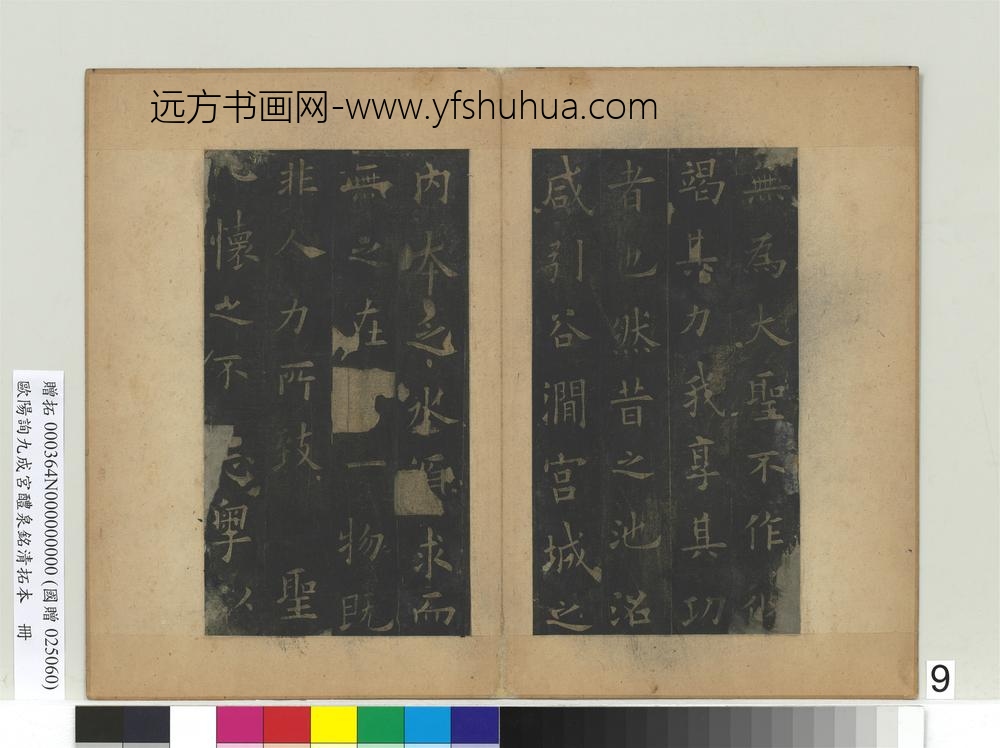 远方书画网-www.yfshuhua.com
無為大聖不作彼
竭其力我享其功
者也然昔之池沼
咸引谷澗宮城之
内本乏水源求而
無之在一物既
非人力所致 聖
心懷之不忘粤以
贈拓 000364N000000000 (國贈 025060)
歐陽詢九成宮醴泉銘清拓本 冊
9